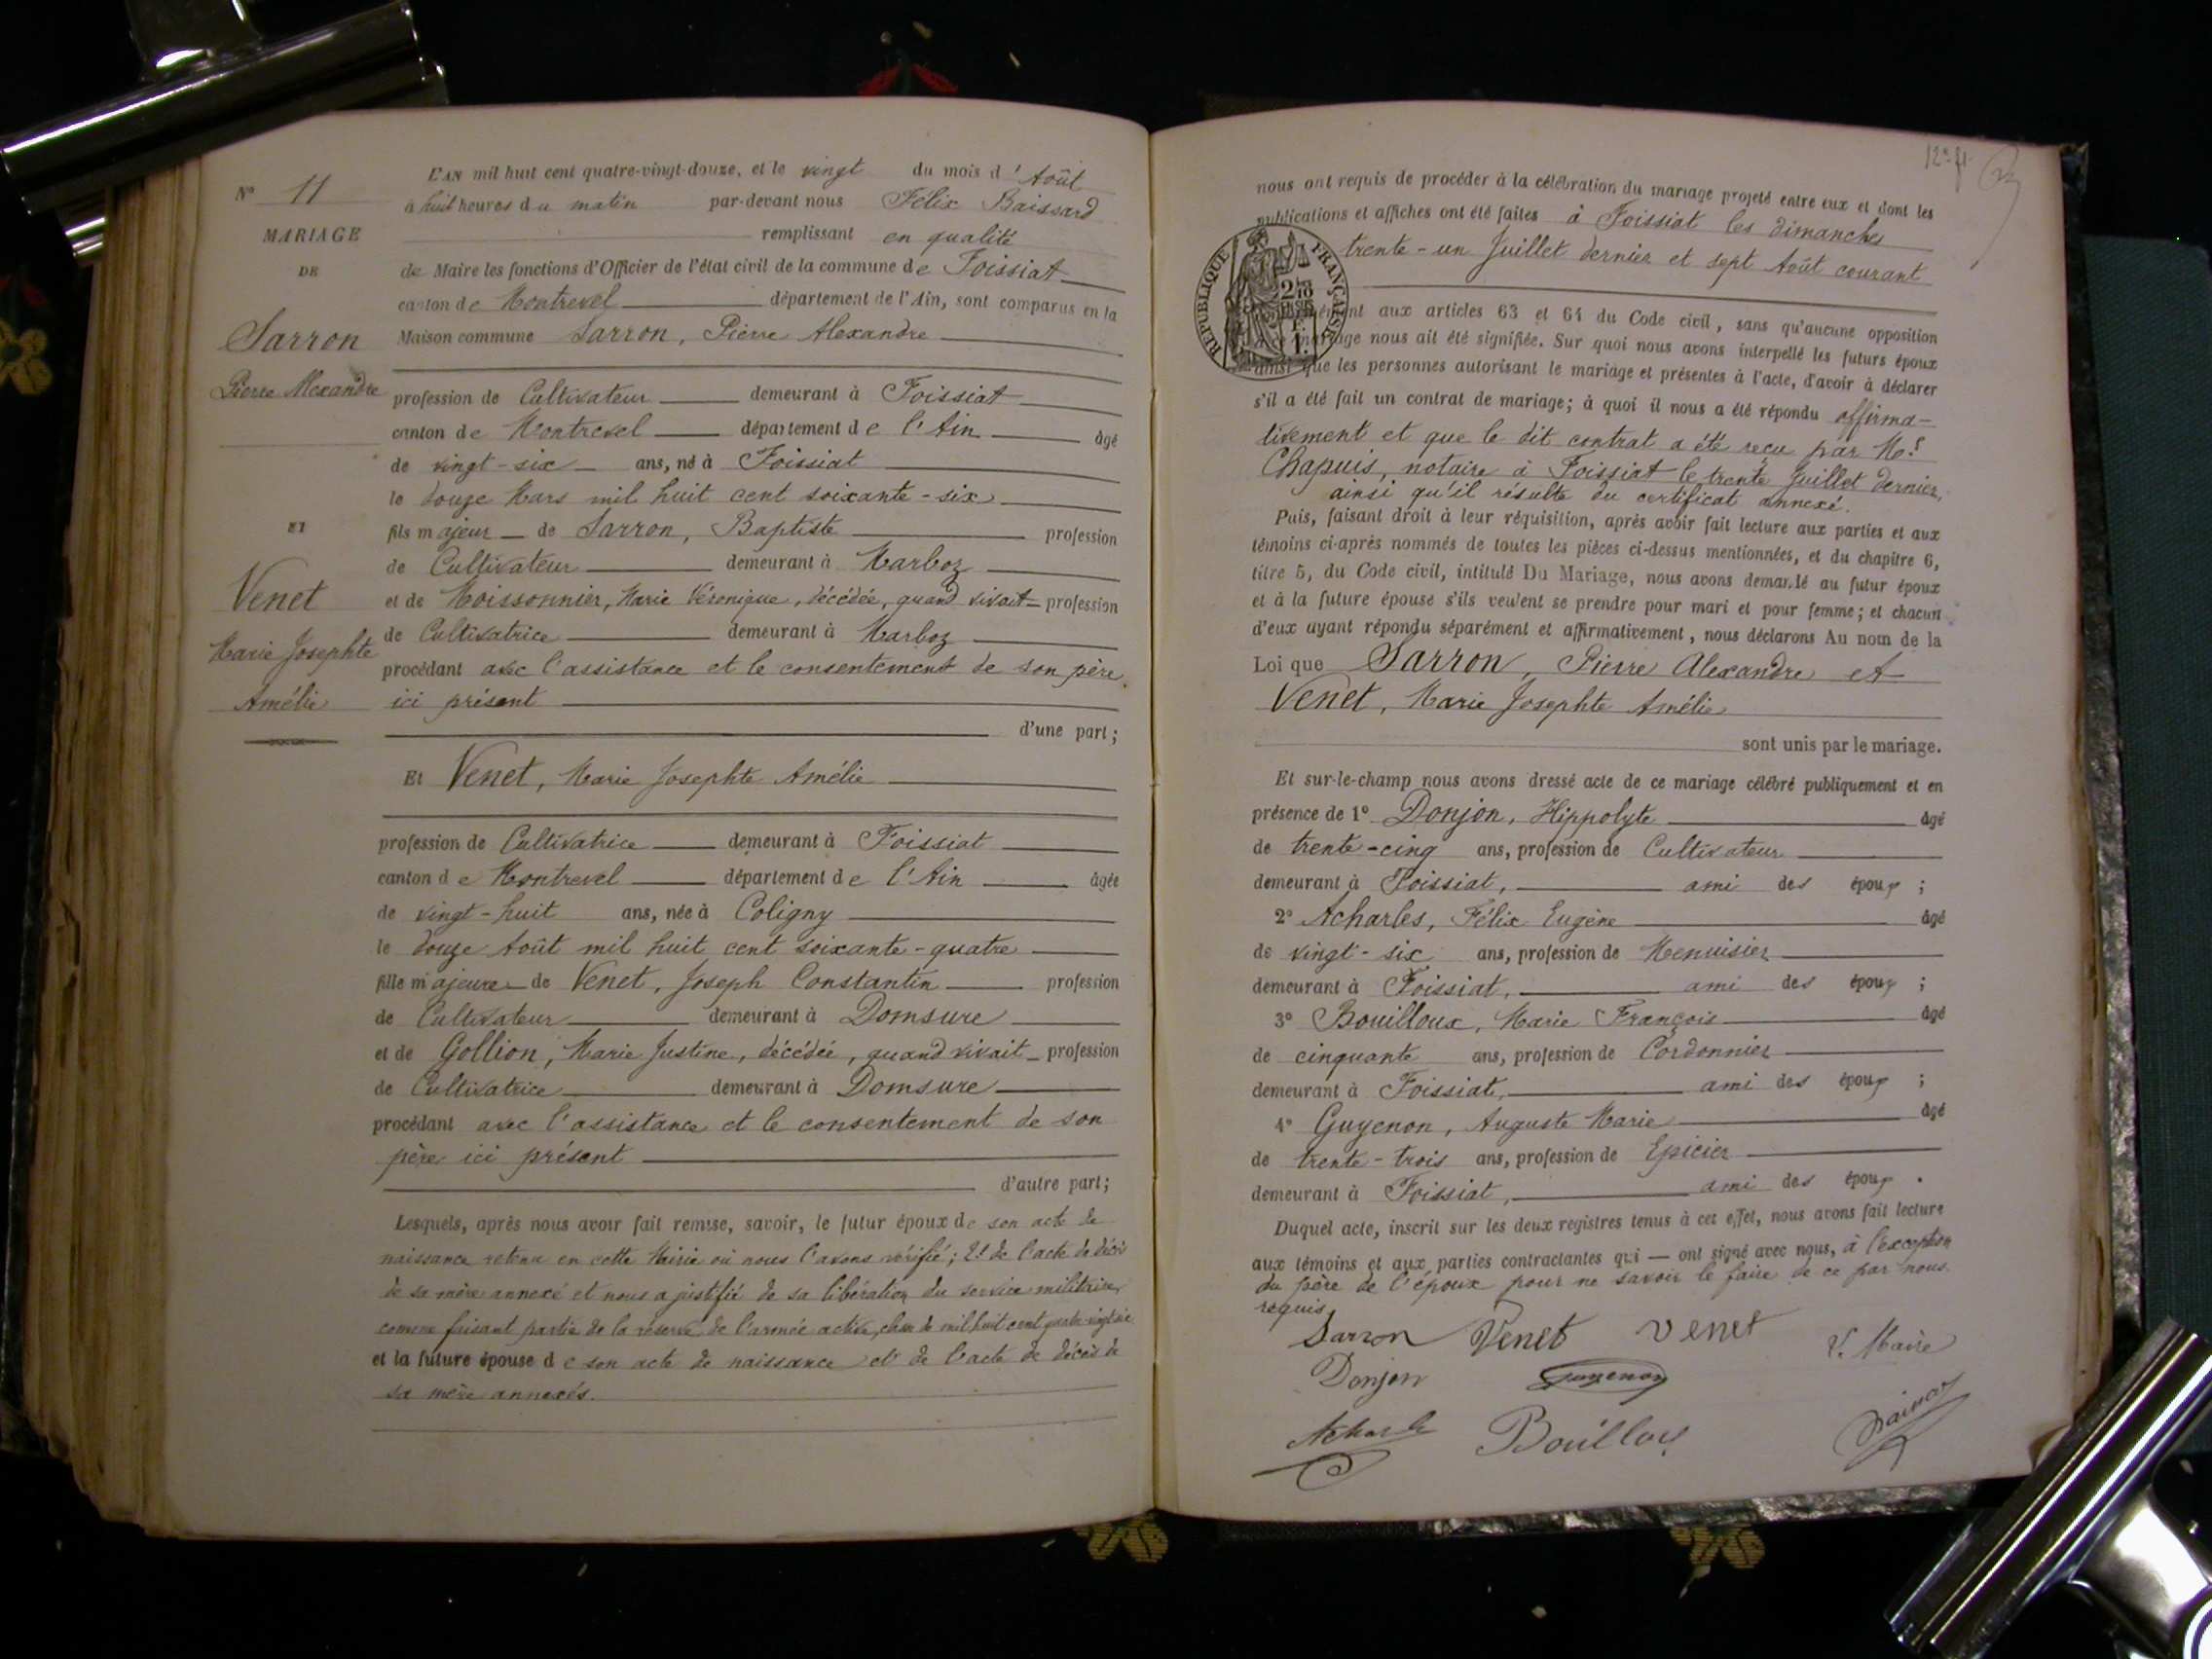 N° 11
MARIAGE
DE
Sarron
Pierre Alexandre
ET
Venet
Marie Josephte
Amélie
L'AN mil huit cent quatre-vingt-douze, et le vingt du mois d'Août
à huit heures du matin par-devant nous Félix Baissard
remplissant en qualité
de Maire les fonctions d'Officier de l'état civil de la commune de Foissiat
canton de Montrevel département de l'Ain, sont comparus en la
Maison commune Sarron, Pierre Alexandre
profession de Cultivateur demeurant à Foissiat
canton de Montrevel département de l'Ain âgé
de vingt-six ans, né à Foissiat
le douze Mars mil huit cent soixante-six
fils majeur de Sarron, Baptiste profession
de Cultivateur demeurant à Marboz
et de Moissonnier, Marie Véronique, décédée, quand vivait profession
de Cultivatrice demeurant à Marboz
procédant avec l'assistance et le consentement de son père
ici présent
d'une part;
Et Venet, Marie Josephte Amélie
profession de Cultivatrice demeurant à Foissiat
canton de Montrevel département de l'Ain âgée
de vingt-huit ans, née à Coligny
le douze Août mil huit cent soixante-quatre
fille majeure de Venet, Joseph Constantin profession
de Cultivateur demeurant à Domsure
et de Gollion, Marie Justine, décédée, quand vivait profession
de Cultivatrice demeurant à Domsure
procédant avec l'assistance et le consentement de son
père ici présent
d'autre part;
Lesquels, après nous avoir fait remise, savoir, le futur époux de son acte de
naissance retenu en cette Mairie où nous l'avons vérifié; 2° de l'acte de décès
de sa mère annexé et nous a justifié de sa libération du service militaire,
comme faisant partie de la réserve de l'armée active, classe de mil huit cent quatre-vingt-six
et la future épouse de son acte de naissance et de l'acte de décès de
sa mère annexés.
12e ft
nous ont requis de procéder à la célébration du mariage projeté entre eux et dont les
publications et affiches ont été faites à Foissiat les dimanches
trente-un Juillet dernier et sept Août courant
RÉPUBLIQUE FRANÇAISE
2/10
EN SUS
1 F.
aux articles 63 et 64 du Code civil, sans qu'aucune opposition
mariage nous ait été signifiée. Sur quoi nous avons interpellé les futurs époux
ainsi que les personnes autorisant le mariage et présentes à l'acte, d'avoir à déclarer
s'il a été fait un contrat de mariage; à quoi il nous a été répondu affirma-
tivement et que le dit contrat a été reçu par Me
Chapuis, notaire à Foissiat le trente Juillet dernier,
ainsi qu'il résulte du certificat annexé.
Puis, faisant droit à leur réquisition, après avoir fait lecture aux parties et aux
témoins ci-après nommés de toutes les pièces ci-dessus mentionnées, et du chapitre 6,
titre 5, du Code civil, intitulé Du Mariage, nous avons demandé au futur époux
et à la future épouse s'ils veulent se prendre pour mari et pour femme; et chacun
d'eux ayant répondu séparément et affirmativement, nous déclarons Au nom de la
Loi que Sarron, Pierre Alexandre et
Venet, Marie Josephte Amélie
sont unis par le mariage.
Et sur-le-champ nous avons dressé acte de ce mariage célébré publiquement et en
présence de 1° Donjon, Hippolyte âgé
de trente-cinq ans, profession de Cultivateur
demeurant à Foissiat, ami des époux;
2° Acharles, Félix Eugène âgé
de vingt-six ans, profession de Menuisier
demeurant à Foissiat, ami des époux;
3° Bouilloux, Marie François âgé
de cinquante ans, profession de Cordonnier
demeurant à Foissiat, ami des époux;
4° Guyenon, Auguste Marie âgé
de trente-trois ans, profession de Epicier
demeurant à Foissiat, ami des époux.
Duquel acte, inscrit sur les deux registres tenus à cet effet, nous avons fait lecture
aux témoins et aux parties contractantes qui — ont signé avec nous, à l'exception
du père de l'époux pour ne savoir le faire de ce par nous
requis.
Sarron Venet Venet V. Maire
Donjon Guyenon
Acharle Bouilloux